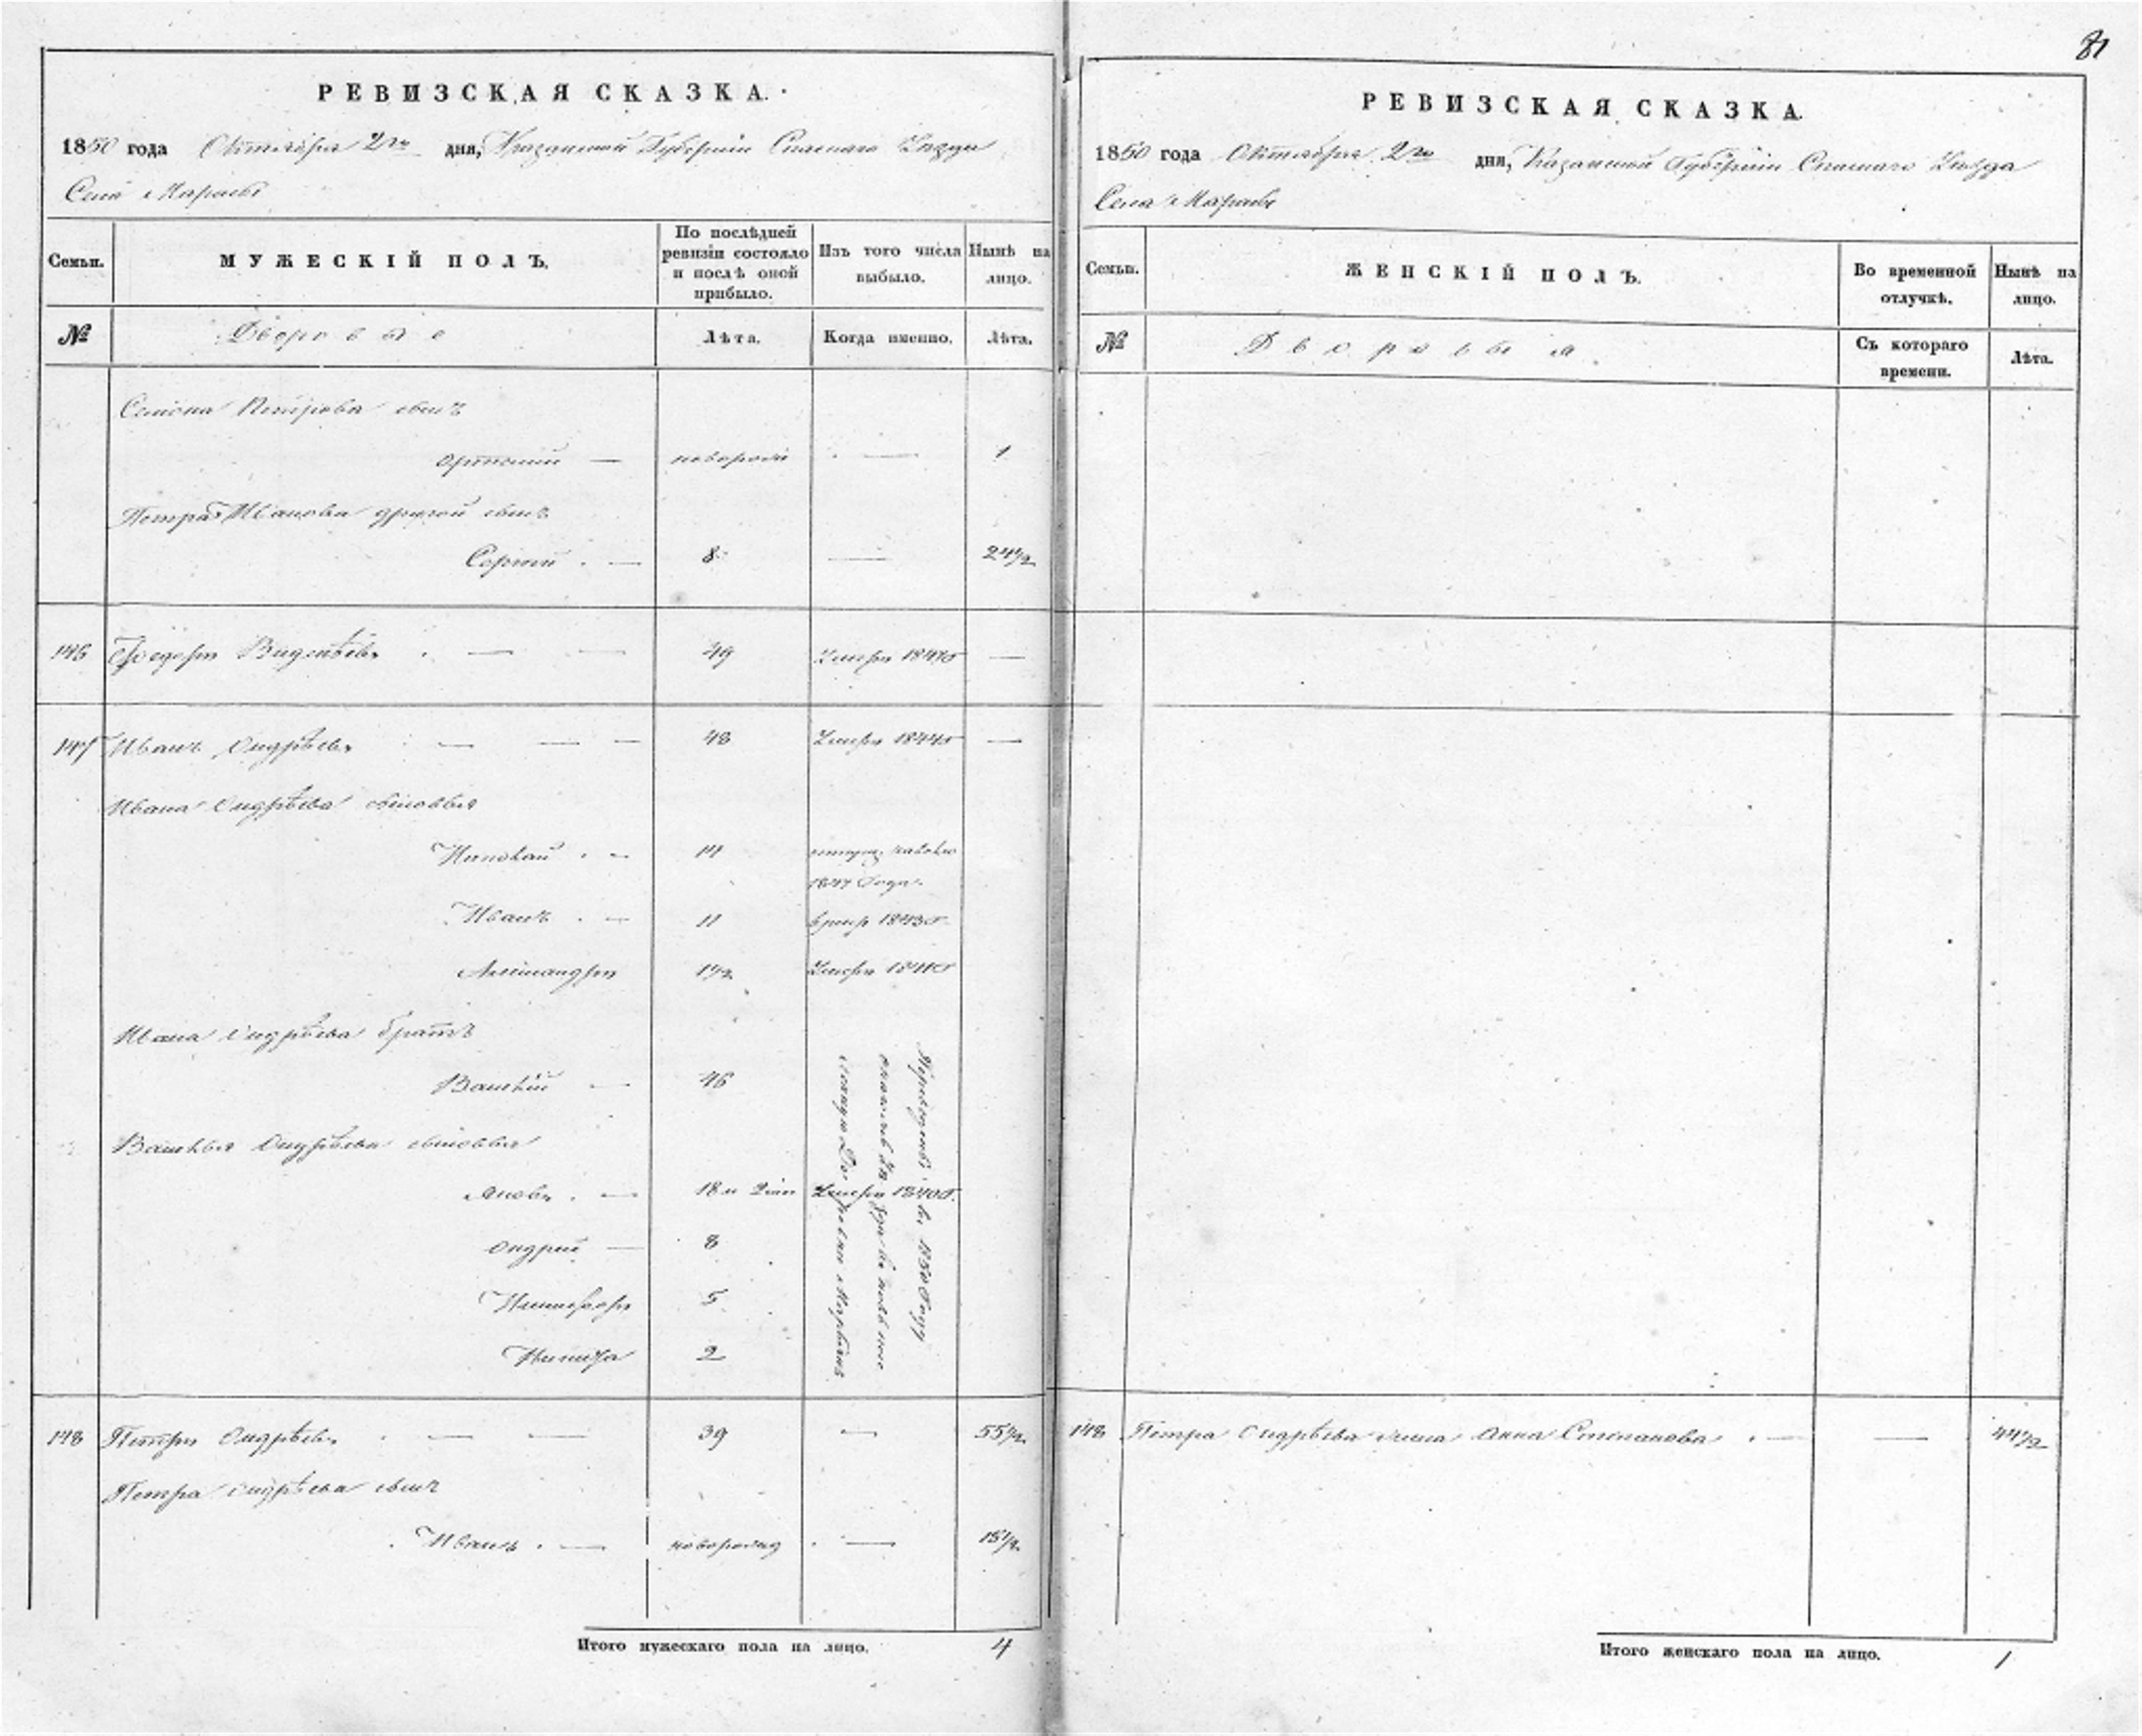 81
РЕВИЗСКАЯ СКАЗКА.
1850 года Октября 2го дня, Казанской Губерніи Спаскаго Уезда
Села
Семьи.
МУЖЕСКІЙ ПОЛЪ.
По послѣдней ревизіи состояло и послѣ оной прибыло.
Изъ того числа выбыло.
Нынѣ на лицо.
№
Дворовые
Лѣта.
Когда именно.
Лѣта.
Семена Петрова сынъ
новорож 1
Петра Иванова другой сынъ
Сергий 8 24½
146 Федоръ 49 Умеръ
147 Иванъ Андрѣевъ 48 Умеръ 1844
Ивана Андрѣева сыновья
Николай 14
1847 года
Иванъ 11 1843
Александръ 1½ Умеръ
Ивана Андрѣева братъ
Василій 46
Василья Андрѣева сыновья
Яковъ 18 Умеръ 1840
Андрей 8
Никифоръ 5
Никита 2
1850 году
148 Петръ Андрѣевъ 39 55½
Петра Андрѣева сынъ
Иванъ новорожд 15½
Итого мужескаго пола на лицо. 4
РЕВИЗСКАЯ СКАЗКА.
1850 года Октября 2го дня, Казанской Губерніи Спаскаго Уезда
Села
Семьи.
ЖЕНСКІЙ ПОЛЪ.
Во временной отлучкѣ.
Нынѣ на лицо.
№
Дворовыя
Съ котораго времени.
Лѣта.
148 Петра Андрѣева жена Анна Степанова 44½
Итого женскаго пола на лицо. 1